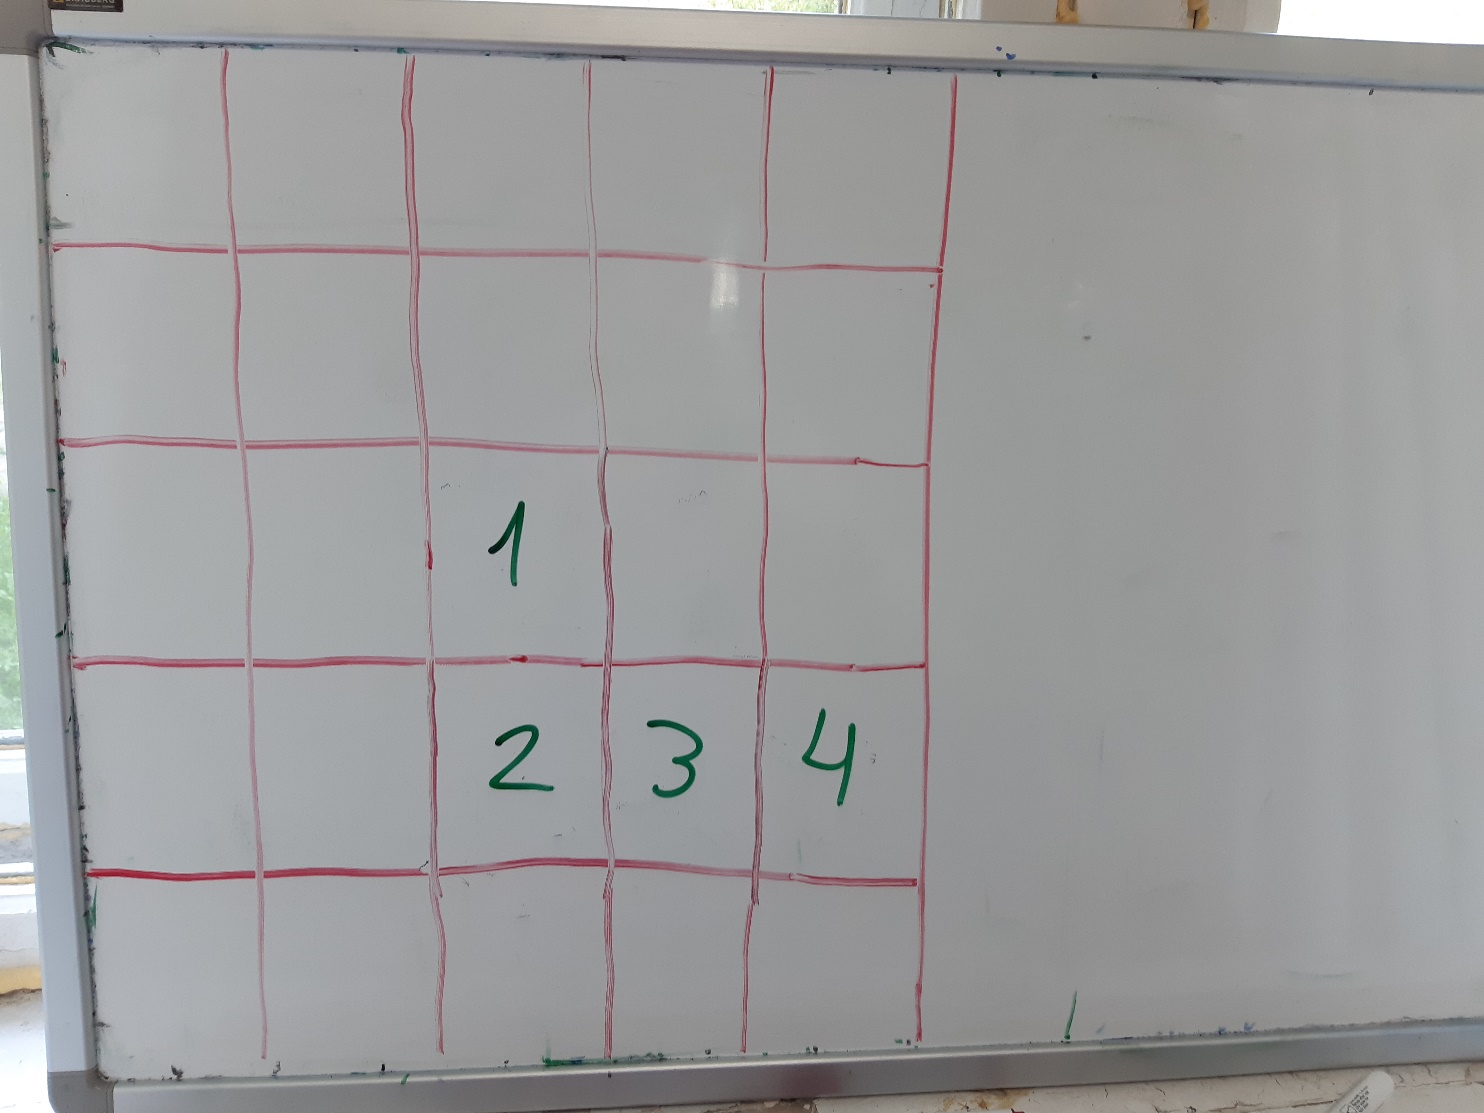 1
2 3 4